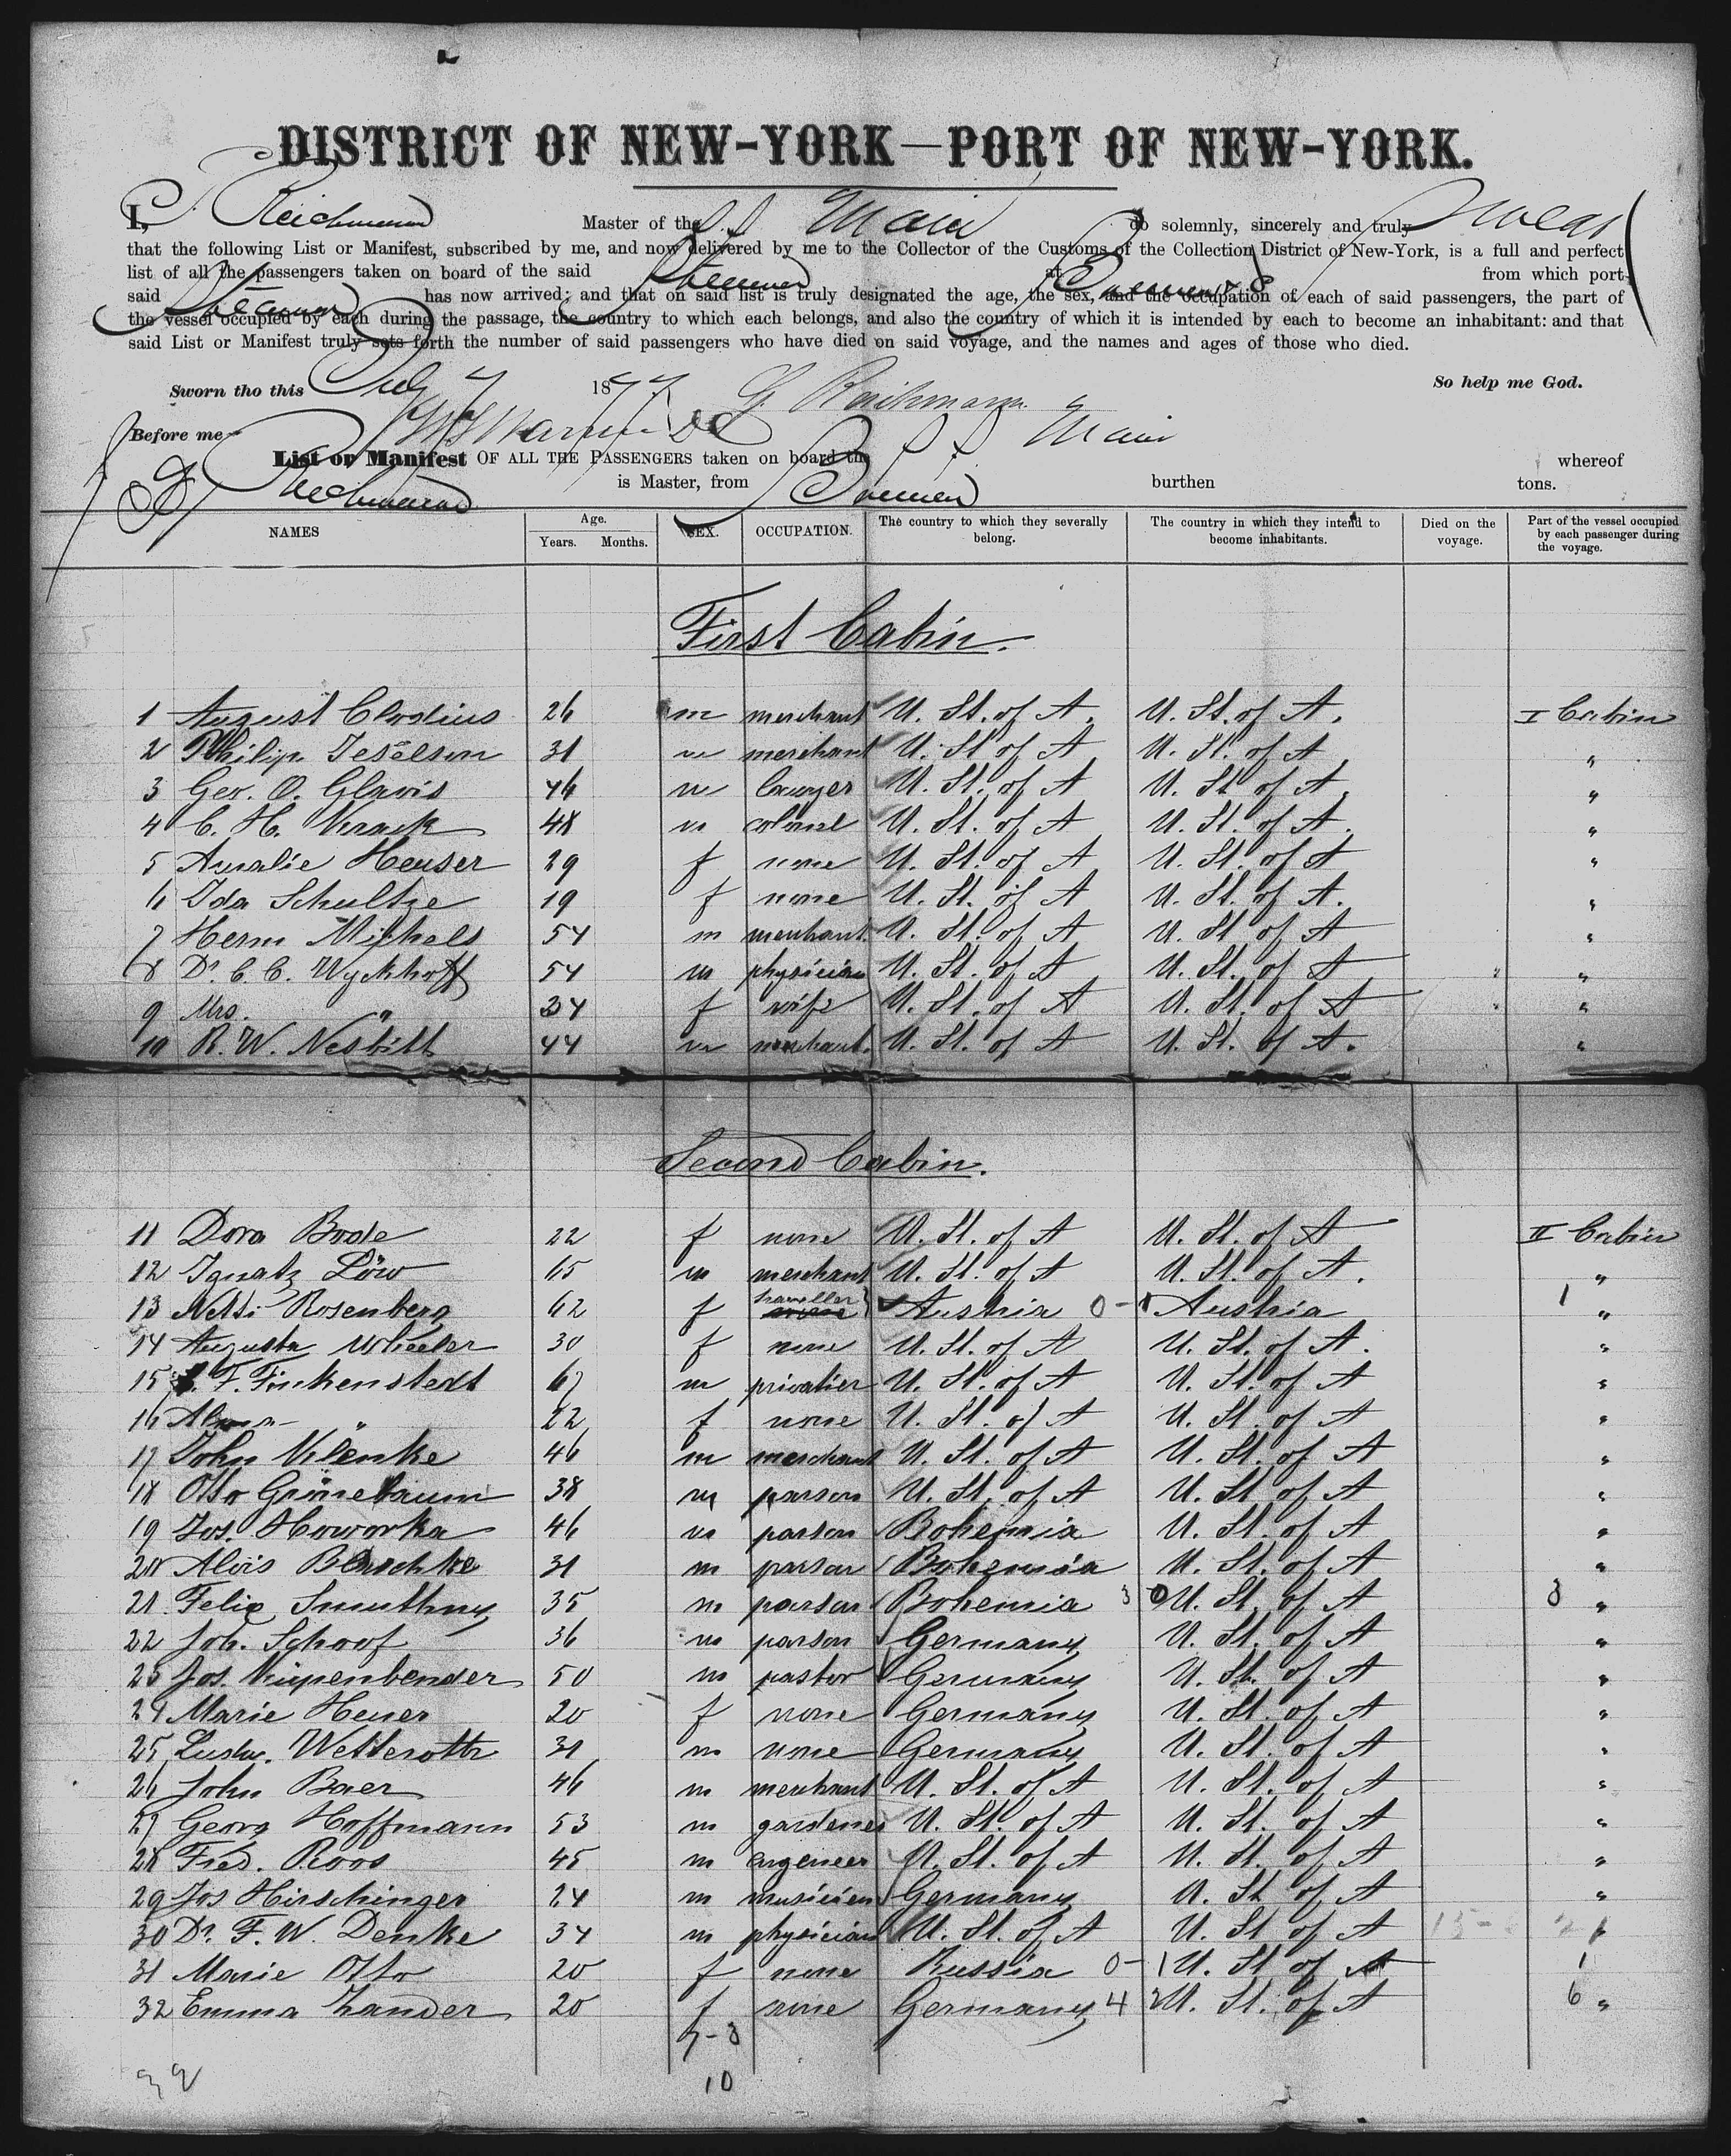 DISTRICT OF NEW-YORK—PORT OF NEW-YORK.
I, Reichmann Master of the S S Main do solemnly, sincerely and truly swear
that the following List or Manifest, subscribed by me, and now delivered by me to the Collector of the Customs of the Collection District of New-York, is a full and perfect
list of all the passengers taken on board of the said Steamer at Bremen from which port
said Steamer has now arrived; and that on said list is truly designated the age, the sex, and the occupation of each of said passengers, the part of
the vessel occupied by each during the passage, the country to which each belongs, and also the country of which it is intended by each to become an inhabitant: and that
said List or Manifest truly sets forth the number of said passengers who have died on said voyage, and the names and ages of those who died.
Sworn tho this July 7 1877 G. Reichmann So help me God.
Before me
List or Manifest OF ALL THE PASSENGERS taken on board the S S Main whereof
Reichmann is Master, from Bremen burthen tons.
NAMES Age. Years. Months. SEX. OCCUPATION. The country to which they severally belong. The country in which they intend to become inhabitants. Died on the voyage. Part of the vessel occupied by each passenger during the voyage.
First Cabin.
1 August Clodius 26 m merchant U. St. of A. U. St. of A. I Cabin
2 Philip Jeselson 31 m merchant U. St. of A U. St. of A "
3 Geo. O. Glavis 46 m lawyer U. St. of A U. St. of A. "
4 C. H. 48 m colonel U. St. of A U. St. of A. "
5 Amalie Heuser 29 f none U. St. of A U. St. of A "
6 Ida Schultze 19 f none U. St. of A U. St. of A. "
7 Herm Michals 54 m merchant. U. St. of A U. St. of A "
8 Dr. C. C. Wyckhoff 54 m physician U. St. of A U. St. of A "
9 Mrs. " 34 f wife U. St. of A U. St. of A "
10 R. W. Nesbitt 44 m merchant. U. St. of A U. St. of A. "
Second Cabin.
11 Dora Bode 22 f none U. St. of A U. St. of A II Cabin
12 Ignatz Löw 65 m merchant U. St. of A U. St. of A. "
13 Netti Rosenberg 62 f traveller Austria 0-1 Austria 1 "
14 Augusta Wheeler 30 f none U. St. of A U. St. of A. "
15 F. Finkenstedt 67 m privatier U. St. of A U. St. of A "
16 Alma " 22 f none U. St. of A U. St. of A "
17 John Klenke 46 m merchant U. St. of A U. St. of A "
18 Otto Grönebaum 38 m parson U. St. of A U. St. of A "
19 Jos. Howorka 46 m parson Bohemia U. St. of A "
20 Alois Blaschke 31 m parson Bohemia U. St. of A "
21. Felix Smuthny 35 m parson Bohemia 3 0 U. St. of A 3 "
22 Joh. Schoof 36 m parson Germany U. St. of A "
23 Jos. Kiepenbender 50 m pastor Germany U. St. of A "
24 Marie Heuer 20 f none Germany U. St. of A "
25 Ludw. Wetteroth 31 m none Germany U. St. of A "
26 John Baer 46 m merchant U. St. of A U. St. of A "
27 Georg Hoffmann 53 m gardener U. St. of A U. St. of A "
28 Fred. Roos 45 m engeneer U. St. of A U. St. of A "
29 Jos Hirschinger 24 m musicien Germany U. St. of A "
30 Dr. F. W. Denke 34 m physician U. St. of A U. St. of A 15-6 21
31 Marie Otto 20 f none Russia 0-1 U. St. of A 1
32 Emma Zander 20 f none Germany 4 2 U. St. of A 6 "
7-3
32 10